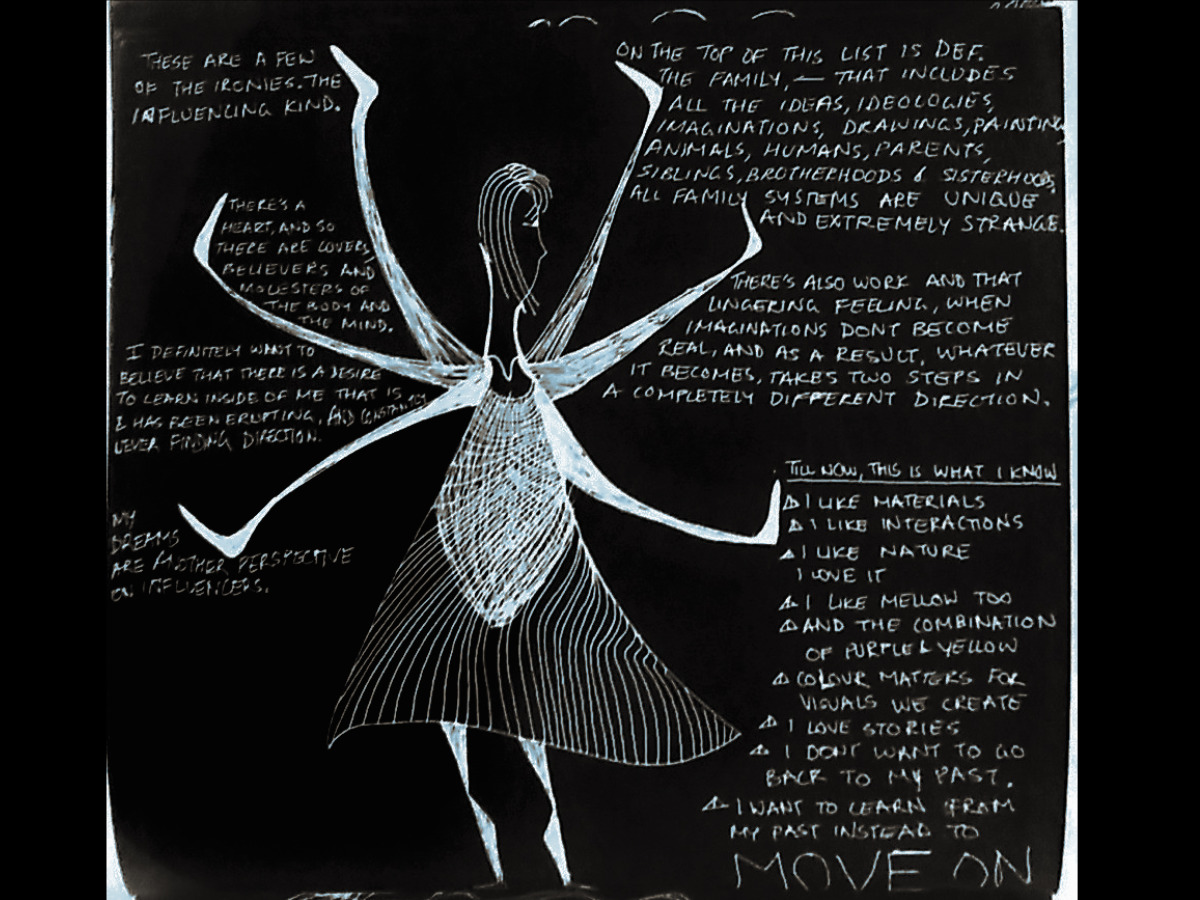 THESE ARE A FEW
OF THE IRONIES. THE
INFLUENCING KIND.
THERE'S A
HEART, AND SO
THERE ARE LOVERS,
BELIEVERS AND
MOLESTERS OF
THE BODY AND
THE MIND.
I DEFINITELY WANT TO
BELIEVE THAT THERE IS A DESIRE
TO LEARN INSIDE OF ME THAT IS
& HAS BEEN ERUPTING, AND CONSTANTLY
NEVER FINDING DIRECTION.
MY
DREAMS
ARE ANOTHER PERSPECTIVE
ON INFLUENCERS.
ON THE TOP OF THIS LIST IS DEF.
THE FAMILY, — THAT INCLUDES
ALL THE IDEAS, IDEOLOGIES,
IMAGINATIONS, DRAWINGS, PAINTING,
ANIMALS, HUMANS, PARENTS,
SIBLINGS, BROTHERHOODS & SISTERHOODS,
ALL FAMILY SYSTEMS ARE UNIQUE
AND EXTREMELY STRANGE.
THERE'S ALSO WORK AND THAT
LINGERING FEELING, WHEN
IMAGINATIONS DONT BECOME
REAL, AND AS A RESULT, WHATEVER
IT BECOMES, TAKES TWO STEPS IN
A COMPLETELY DIFFERENT DIRECTION.
TILL NOW, THIS IS WHAT I KNOW
I LIKE MATERIALS
I LIKE INTERACTIONS
I LIKE NATURE
I LOVE IT
I LIKE MELLOW TOO
AND THE COMBINATION
OF PURPLE & YELLOW
COLOUR MATTERS FOR
VISUALS WE CREATE
I LOVE STORIES
I DONT WANT TO GO
BACK TO MY PAST.
I WANT TO LEARN FROM
MY PAST INSTEAD TO
MOVE ON